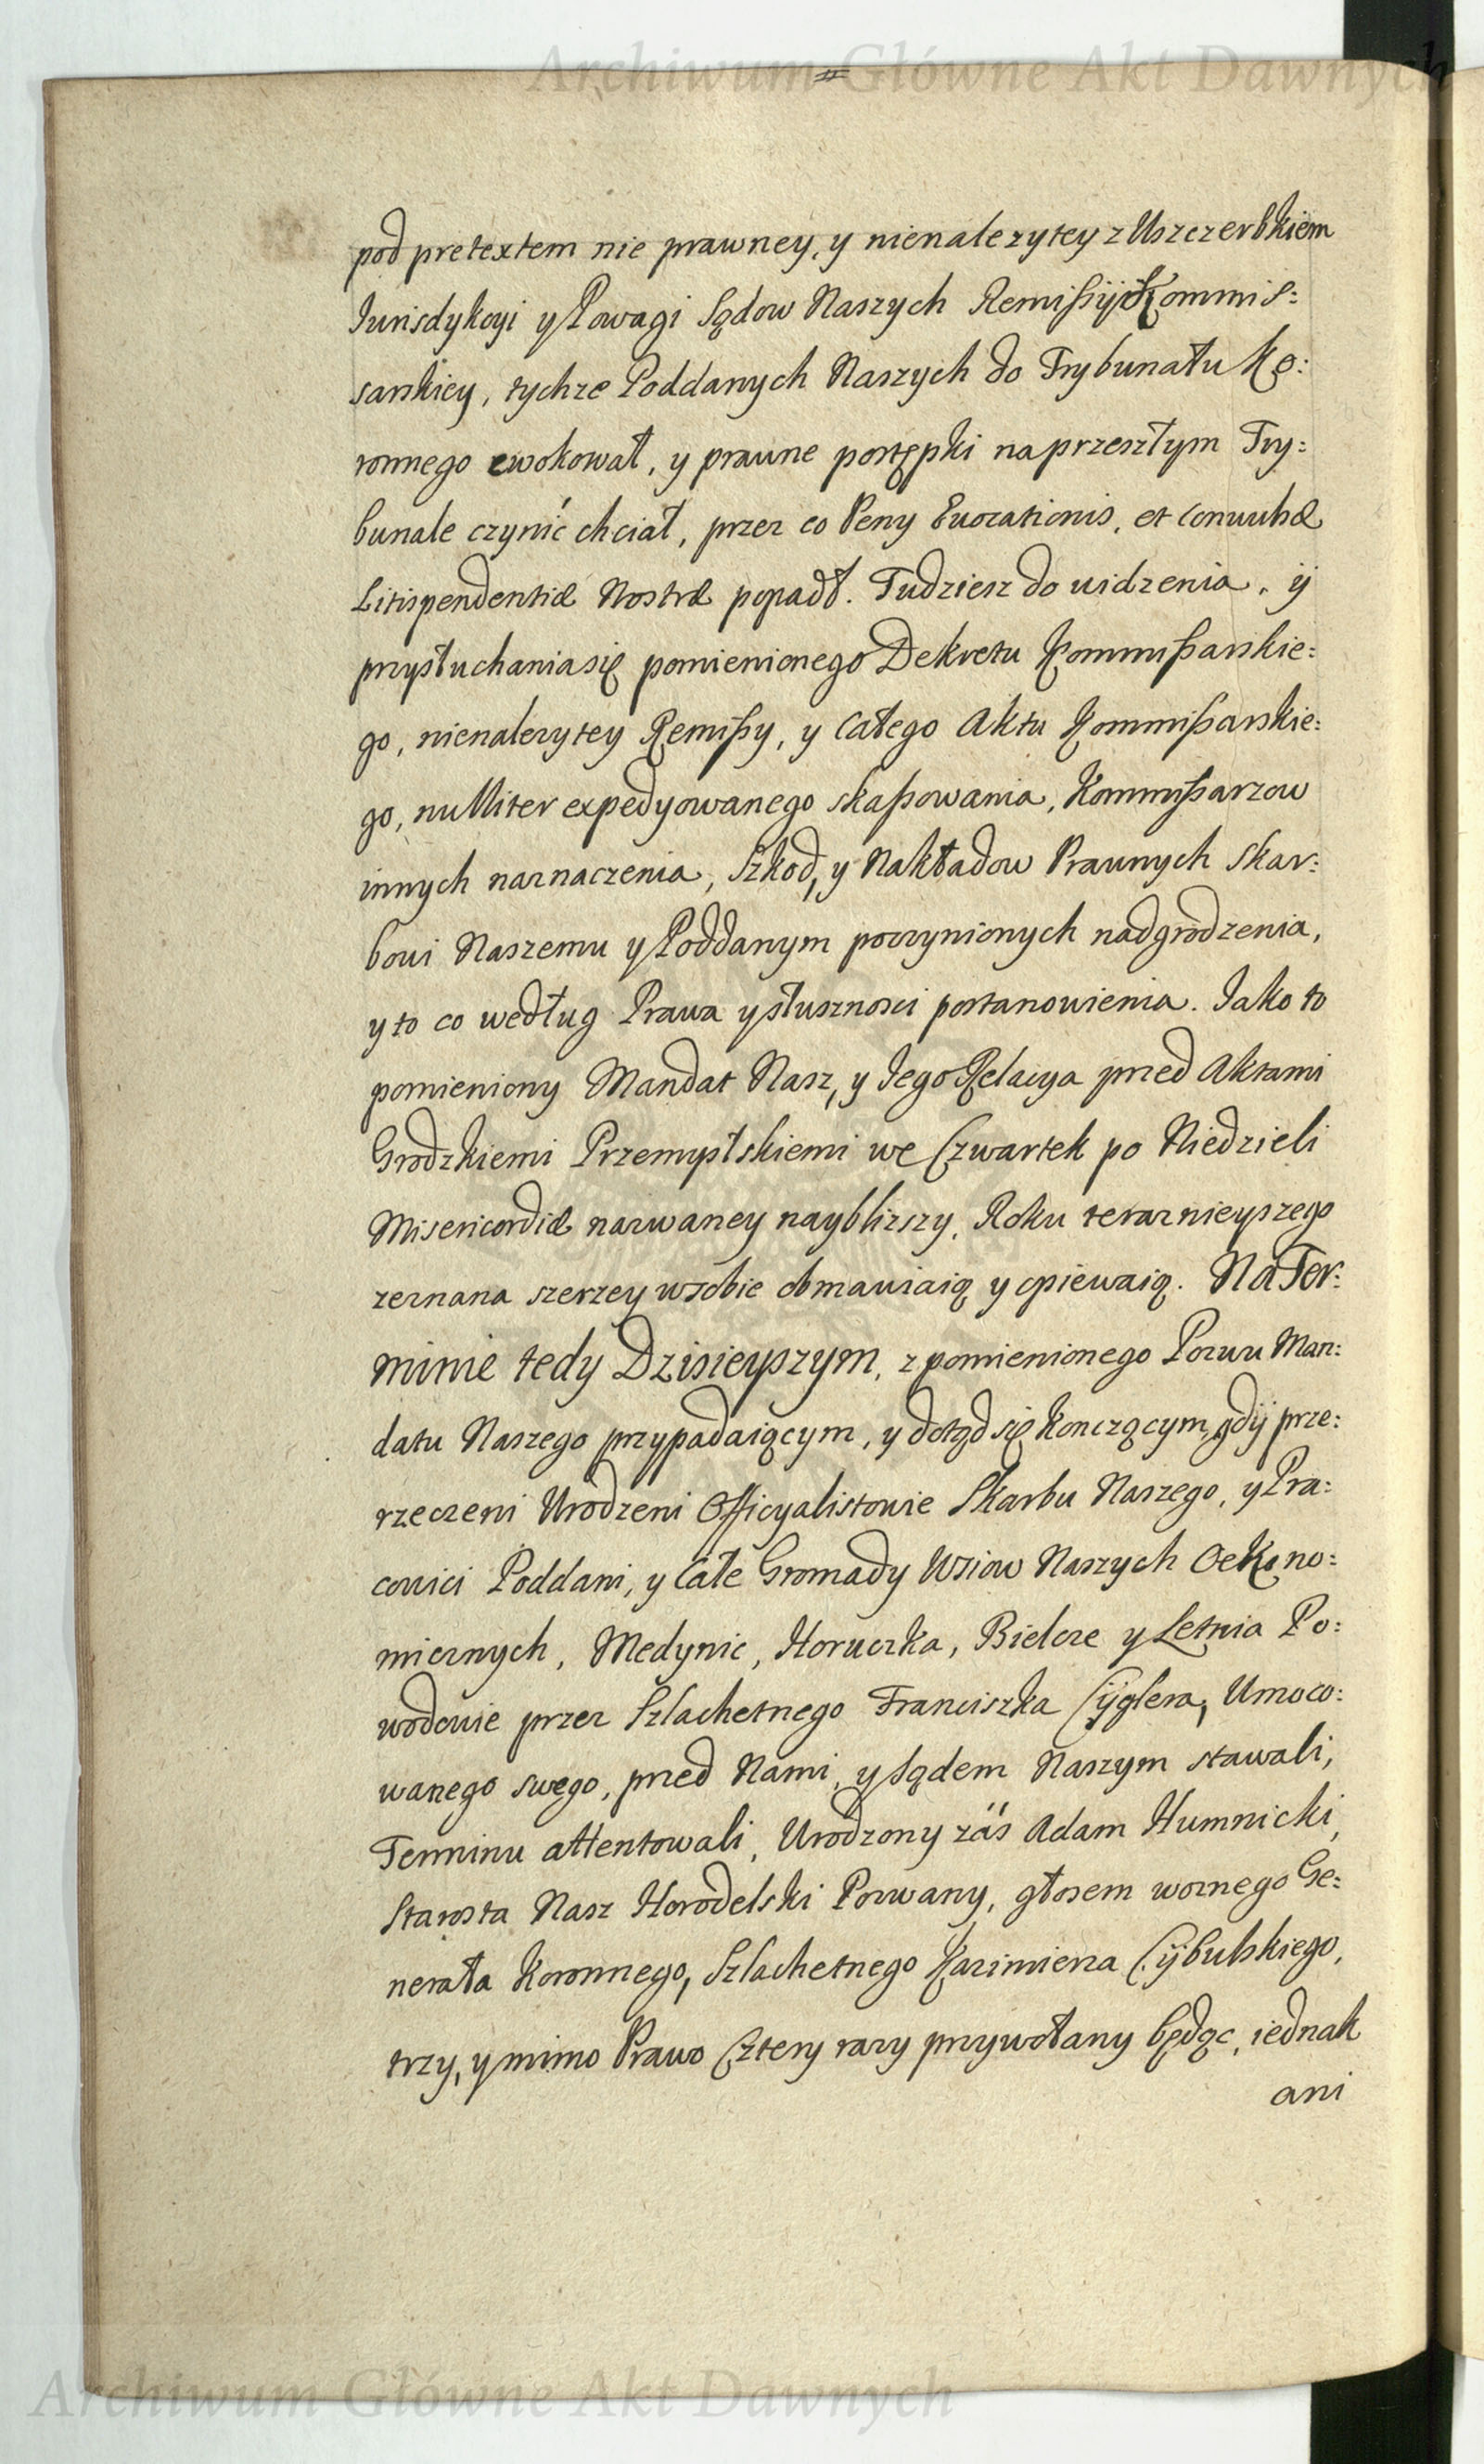 Archiwum Główne Akt Dawnych
pod pretextem nie prawney, y nienalezytey z Uszczerbkiem
Iurisdykcyi y Powagi Sądow Naszych Remißyi Kommis:
sarskiey, tychze Poddanych Naszych do Trybunału Ko:
ronnego ewokował, y prawne postępki na przeszłym Try:
bunale czynić chciał, przez co Peny Evocationis, et Convulsæ
Litispendentiæ Nostræ popadł. Tudziesz do widzenia, ÿ
przysłuchania się pomienionego Dekretu Kommißarskie:
go, nienalezytey Remißy, y Całego Aktu Kommißarskie:
go, nulliter expedyowanego skaßowania, Kommißarzow
innych naznaczenia, Szkod, y Nakładow Prawnych Skar:
bowi Naszemu y Poddanym poczynionych nadgrodzenia,
y to co według Prawa y słusznosci postanowienia. Iako to
pomieniony Mandat Nasz, y Iego Relacya przed Aktami
Grodzkiemi Przemyslskiemi we Czwartek po Niedzieli
Misericordiæ nazwaney nayblizszy, Roku terazniejszego
zeznana szerzey w sobie obmawiaią y opiewaią. Na Ter:
minie tedy Dzisieyszym, z pomienionego Pozwu Man:
datu Naszego przypadaiącym, y dotąd się konczącym, gdÿ prze:
rzeczeni Urodzeni Officyalistowie Skarbu Naszego, y Pra:
cowici Poddani, y Całe Gromady Wsiow Naszych Oekono:
micznych, Medynic, Horuczka, Bielcze y Letnia Po:
wodowie przez Szlachetnego Franciszka Cÿglera, Umoco:
wanego swego, przed Nami, y Sądem Naszym stawali,
Terminu attentowali, Urodzony záś Adam Humnicki,
Starosta Nasz Horodelski Pozwany, głosem woznego Ge:
nerała Koronnego, Szlachetnego Kazimierza Cÿbulskiego,
trzy, y mimo Prawo Cztery razy przywołany będąc, iednak
ani
Archiwum Główne Akt Dawnych